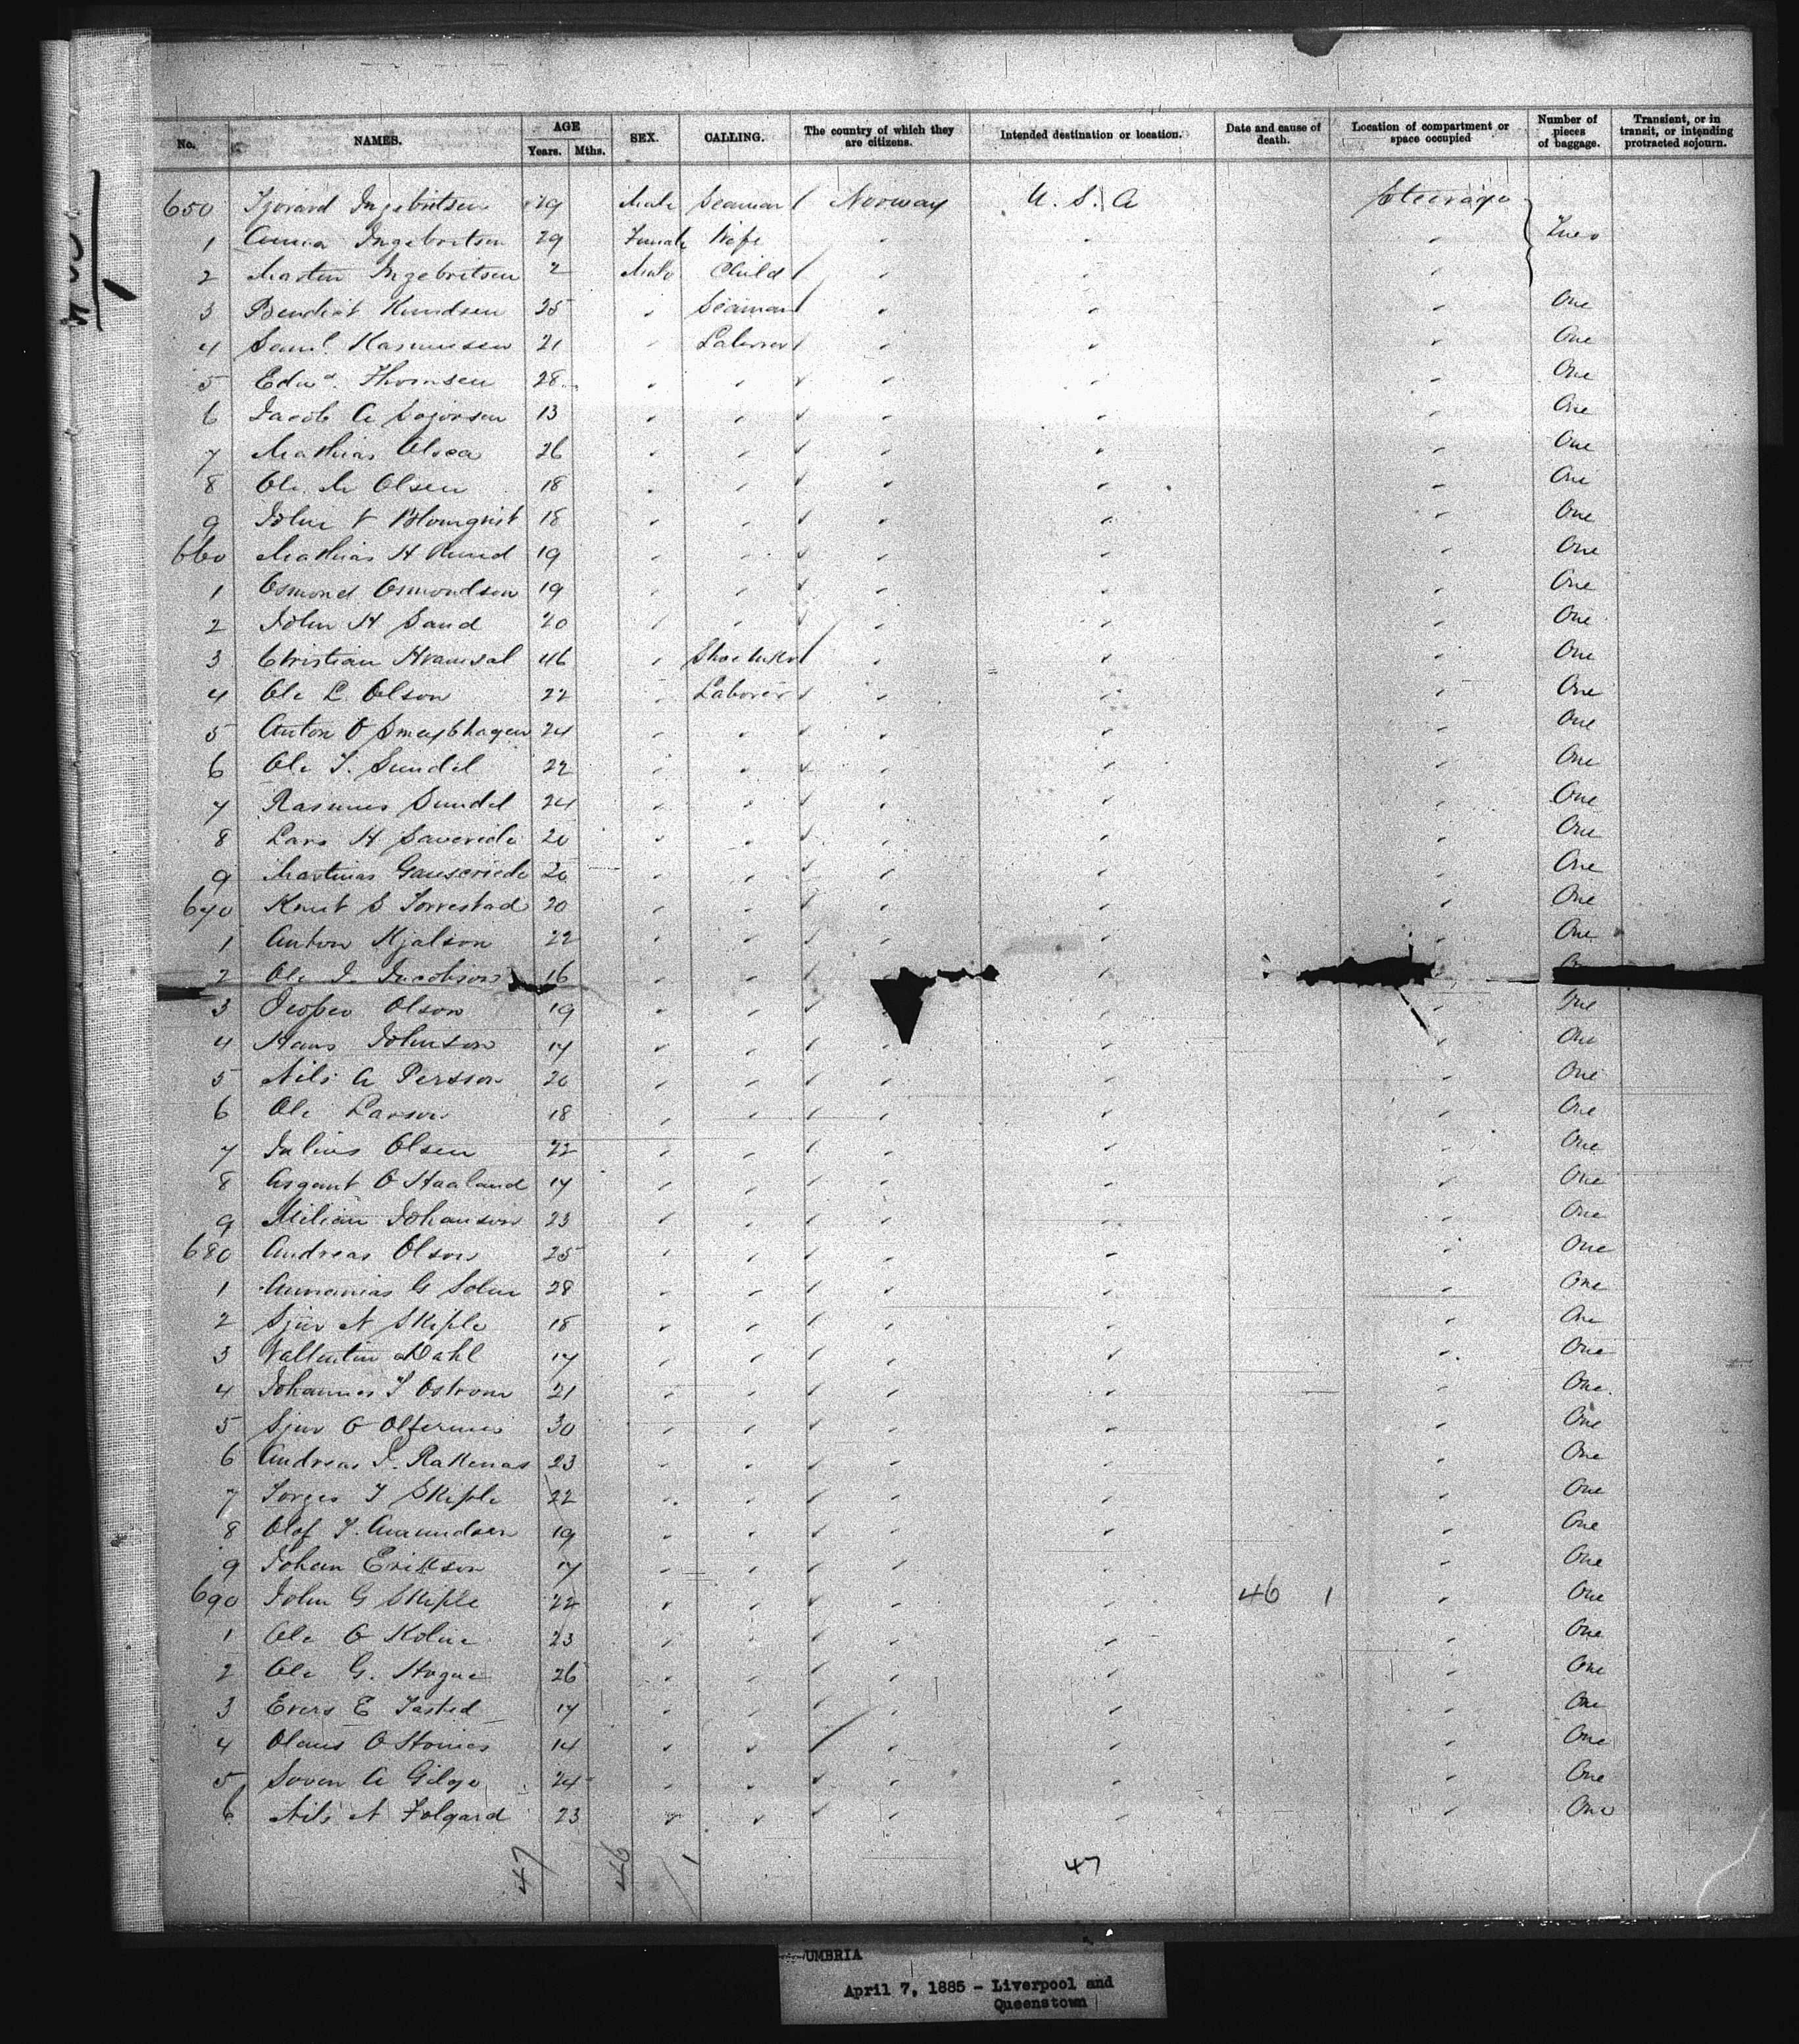 No. NAMES. AGE Years. Mths. SEX. CALLING. The country of which they are citizens. Intended destination or location. Date and cause of death. Location of compartment or space occupied Number of pieces of baggage. Transient, or in transit, or intending protracted sojourn.
650 Ingebritsen 29 Male Seaman Norway U. S. A Steerage
1 Anna Ingebritsen 29 Female Wife
2 Martin Ingebritsen 2 Male Child
3 Bendict Knudsen 25 Seaman One
4 Saml. Rasmussen 21 Laborer One
5 Edwd. Thomsen 28 One
6 Jacob A 13 One
7 Mathias Olsea 26 One
8 Ole M Olsen 18 One
9 John V Blomqvist 18 One
660 Mathias H 19 One
1 Osmond Osmondsen 19 One
2 John H Sand 20 One
3 Christian 46 One
4 Ole L. Olson 22 Laborer One
5 Anton O 24 One
6 Ole T. Sundel 22 One
7 Rasmus Sundel 24 One
8 Lars H 20 One
9 20 One
670 Knut S Torrestad 20 One
1 Anton Kjalson 22 One
2 Ole I. Jacobson 16
3 Jesper Olson 19 One
4 Hans Johnson 17 One
5 Nils A Persson 20 One
6 Ole Larson 18 One
7 Julius Olsen 22 One
8 O Haaland 17 One
9 Johanson 23 One
680 Andreas Olson 25 One
1 G 28 One
2 Sjur N Skiple 18 One
3 Vallentin Dahl 17 One
4 Johannes T Ostrom 21 One
5 Sjur O 30 One
6 Andreas Rakenas 23 One
7 Torges T Skiple 22 One
8 Olof T. Amundsen 19 One
9 Johan Erikson 17 One
690 John G Skiple 22 46 1 One
1 Ole O 23 One
2 Ole G. 26 One
3 E Tasted 17 One
4 Olaus O 14 One
5 A 24 One
6 Nils N Folgard 23 One
47 46 1 47
UMBRIA
April 7, 1885 - Liverpool and
Queenstown